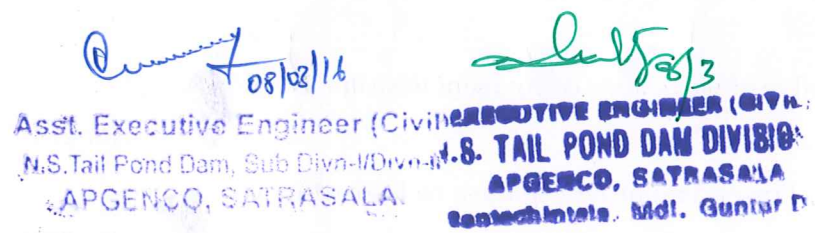 08/03/16
8/3
Asst. Executive Engineer (Civil
N.S.Tail Pond Dam, Sub Divn-I/Divn-II
APGENCO, SATRASALA.
EXECUTIVE ENGINEER (CIVIL
N.S. TAIL POND DAM DIVISIO
APGENCO, SATRASALA
Rentachintala. Mdl. Guntur D